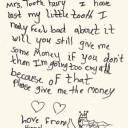 Mrs. Tooth fairy I have
lost my little tooth I
really feel bad about it
will you still give me
some money if you don't
then I'm going too cry all
because of that
Please give me the money
Love from